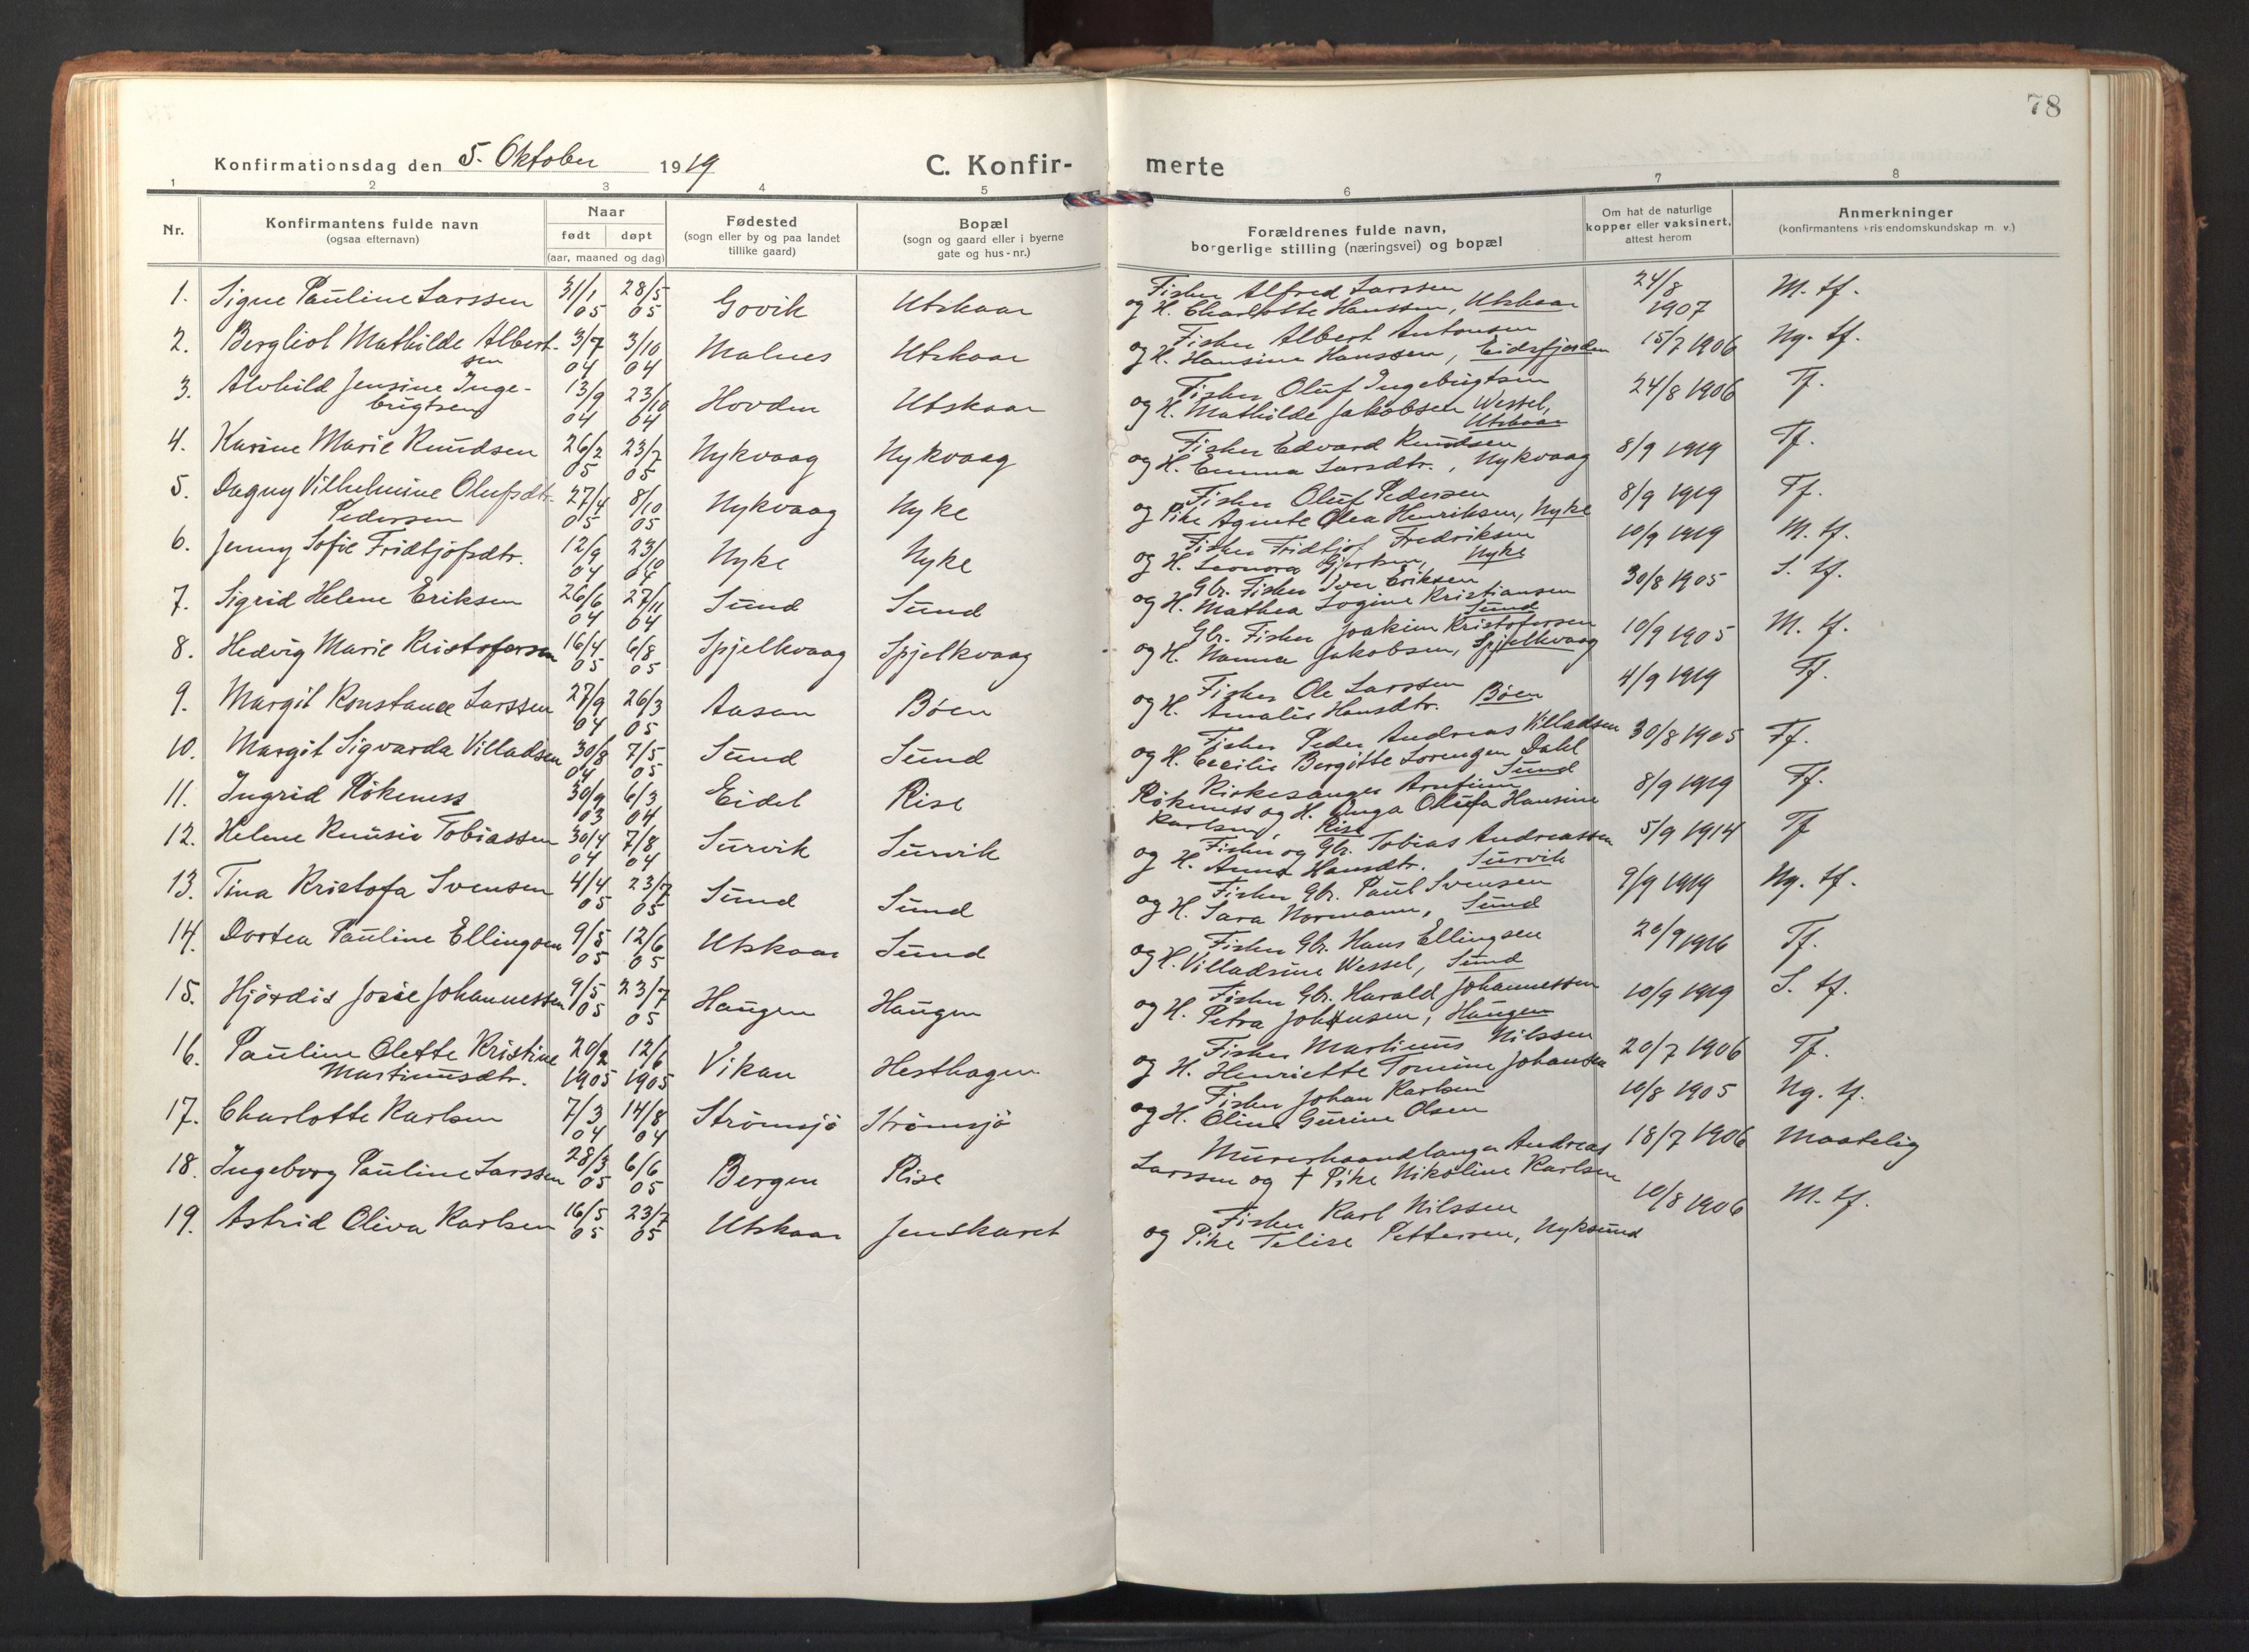 78
Konfirmationsdag den 5. Oktober 1919
C. Konfir-
merte
1 2 3 4 5 6 7 8
Nr.
Konfirmantens fulde navn
(ogsaa efternavn)
Naar
født døpt
(aar, maaned og dag)
Fødested
(sogn eller by og paa landet
tillike gaard)
Bopæl
(sogn og gaard eller i byerne
gate og hus-nr.)
Forældrenes fulde navn,
borgerlige stilling (næringsvei) og bopæl
Om hat de naturlige
kopper eller vaksinert,
attest herom
Anmerkninger
(konfirmantens kristendomskundskap m. v.)
1. Signe Pauline Larssen 31/1 05 28/5 05 Govik Utskaar
Fisker Alfred Larssen
og H. Charlotte Hanssen, Utskaar
24/8 1907 M. tf.
2. Bergliot Mathilde Albert-
sen 3/7 04 3/10 04 Malnes Utskaar
Fisker Albert Antonsen
og H. Hansine Hanssen, Eidsfjorden
15/7 1906 Ng. tf.
3. Alvhild Jensine Inge-
brigtsen 13/9 04 23/10 04 Hovden Utskaar
Fisker Oluf Ingebrigtsen
og H. Mathilde Jakobsen Wessel,
Utskaar
24/8 1906 Tf.
4. Karine Marie Knudsen 26/2 05 23/7 05 Nykvaag Nykvaag
Fisker Edvard Knudsen
og H. Emma Larsdtr., Nykvaag
8/9 1919 Tf.
5. Dagny Vilhelmine Olufsdtr.
Pedersen 27/4 05 8/10 05 Nykvaag Nyke
Fisker Oluf Pedersen
og Pike Agnete Olea Henriksen, Nyke
8/9 1919 Tf.
6. Jenny Sofie Fridtjofsdtr. 12/9 04 23/10 04 Nyke Nyke
Fisker Fridtjof Fredriksen
og H. Leonora Gjertsen, Nyke
10/9 1919 M. tf.
7. Sigrid Helene Eriksen 26/6 04 27/11 04 Sund Sund
Gbr. Fisker Iver Eriksen
og H. Mathea Logine Kristiansen
Sund
30/8 1905 S. tf.
8. Hedvig Marie Kristofersen 16/4 05 6/8 05 Spjelkvaag Spjelkvaag
Gbr. Fisker Joakim Kristofersen
og H. Nanna Jakobsen, Spjelkvaag
10/9 1905 M. tf.
9. Margit Konstance Larssen 27/9 04 26/3 05 Aasan Bøen
Fisker Ole Larssen
og H. Amalie Hansdtr. Bøen
4/9 1919 Tf.
10. Margit Sigvarda Villadsen 30/8 04 7/5 05 Sund Sund
Fisker Peder Andreas Villadsen
og H. Cecilie Bergitte Lorengen Dahl
Sund
30/8 1905 Tf.
11. Ingrid Røkeness 30/9 03 6/3 04 Eidet Rise
Kirkesanger Arnfinn
Røkeness og H. Inga Olufa Hansine
Karlsen, Rise
8/9 1919 Tf.
12. Helene Knusie Tobiassen 30/4 04 7/8 04 Survik Survik
Fisker og Gbr. Tobias Andreassen
og H. Anna Hansdtr. Survik
5/9 1914 Tf
13. Tina Kristofa Svensen 4/4 05 23/7 05 Sund Sund
Fisker Gbr. Paul Svensen
og H. Sara Normann, Sund
9/9 1919 Ng. tf.
14. Dortea Pauline Ellingsen 9/5 05 12/6 05 Utskaar Sund
Fisker Gbr. Hans Ellingsen
og H. Villadsine Wessel, Sund
20/9 1916 Tf.
15. Hjørdis Josie Johannessen 9/5 05 23/7 05 Haugen Haugen
Fisker Gbr. Harald Johannessen
og H. Petra Johnsen, Haugen
10/9 1919 S. tf.
16. Pauline Olette Kristine
Martinusdtr. 20/2 1905 12/6 1905 Vikan Hesthagen
Fisker Martinus Nilssen
og H. Henriette Tomine Johansen
20/7 1906 Tf.
17. Charlotte Karlsen 7/3 04 14/8 04 Strømsjø Strømsjø
Fisker Johan Karlsen
og H. Oline Gurine Olsen
10/8 1905 Ng. tf.
18. Ingeborg Pauline Larssen 28/3 05 6/6 05 Bergen Rise
Murerhaandlanger Andreas
Larssen og † Pike Nikoline Karlsen
18/7 1906 Maatelig
19. Astrid Oliva Karlsen 16/5 05 23/7 05 Utskaar Jenskaret
Fisker Karl Nilssen
og Pike Telise Pettersen, Nyksund
10/8 1906 M. tf.